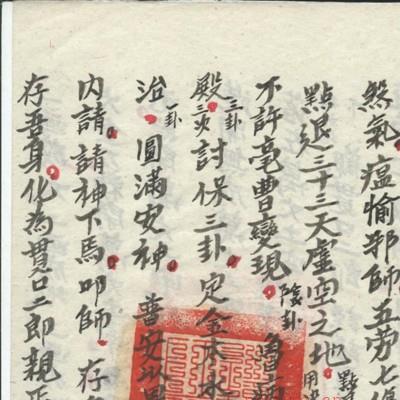 煞氣瘟㾕邪師五劳七傷
點退三十三天虛空之地
不許毫曹變現陰卦
殿三火討保三卦定金木水
三卦
治圓滿安神普安
一卦
内請請神下馬叩師存
存吾身化為貫口二郎親